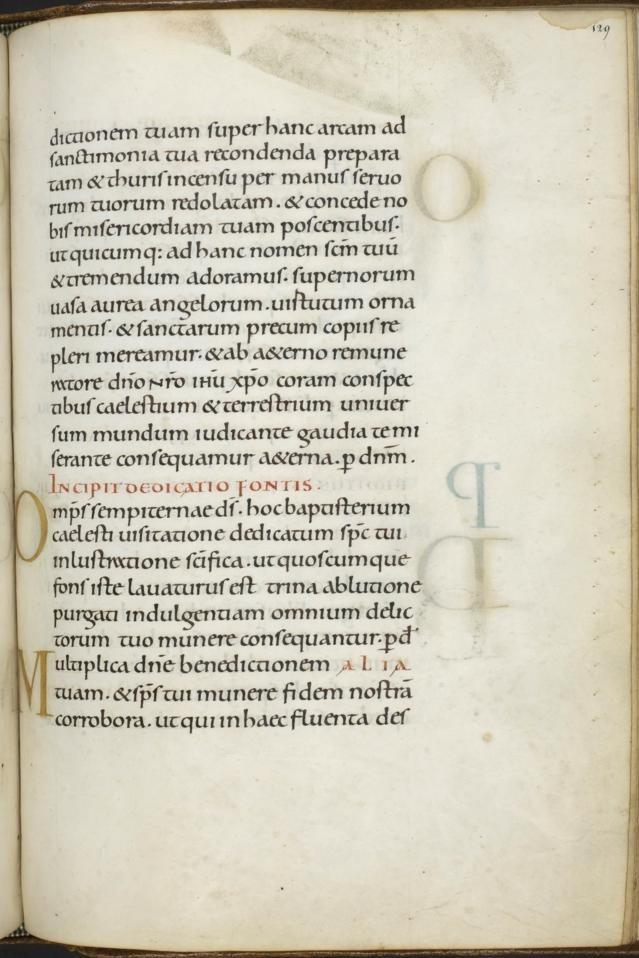 129
dictionem tuam super hanc arcam ad
sanctimonia tua recondenda prepara
tam & thuris incensu per manus seruo
rum tuorum redolatam . & concede no
bis misericordiam tuam poscentibus.
ut quicumq: ad hanc nomen scm̄ tuū
& tremendum adoramus. supernorum
uasa aurea angelorum . uirtutum orna
mentis. & sanctarum precum copiis re
pleri mereamur. & ab a&erno remune
ratore dn̄o nr̄o ihū xp̄o coram conspec
tibus caelestium & terrestrium uniuer
sum mundum iudicante gaudia te mi
serante consequamur a&erna. p̄ dnm̄.
INCIPIT DEDICATIO FONTIS.
Omp̄s sempiternae ds̄. hoc baptisterium
caelesti uisitatione dedicatum sp̄c tui
inlustratione sc̄ifica . ut quoscumque
fons iste lauaturus est trina ablutione
purgati indulgentiam omnium delic
torum tuo munere consequantur. p̄ d̄
Multiplica dn̄e benedictionem ALIA
tuam. & sp̄s tui munere fidem nostrā
corrobora. ut qui in haec fluenta des